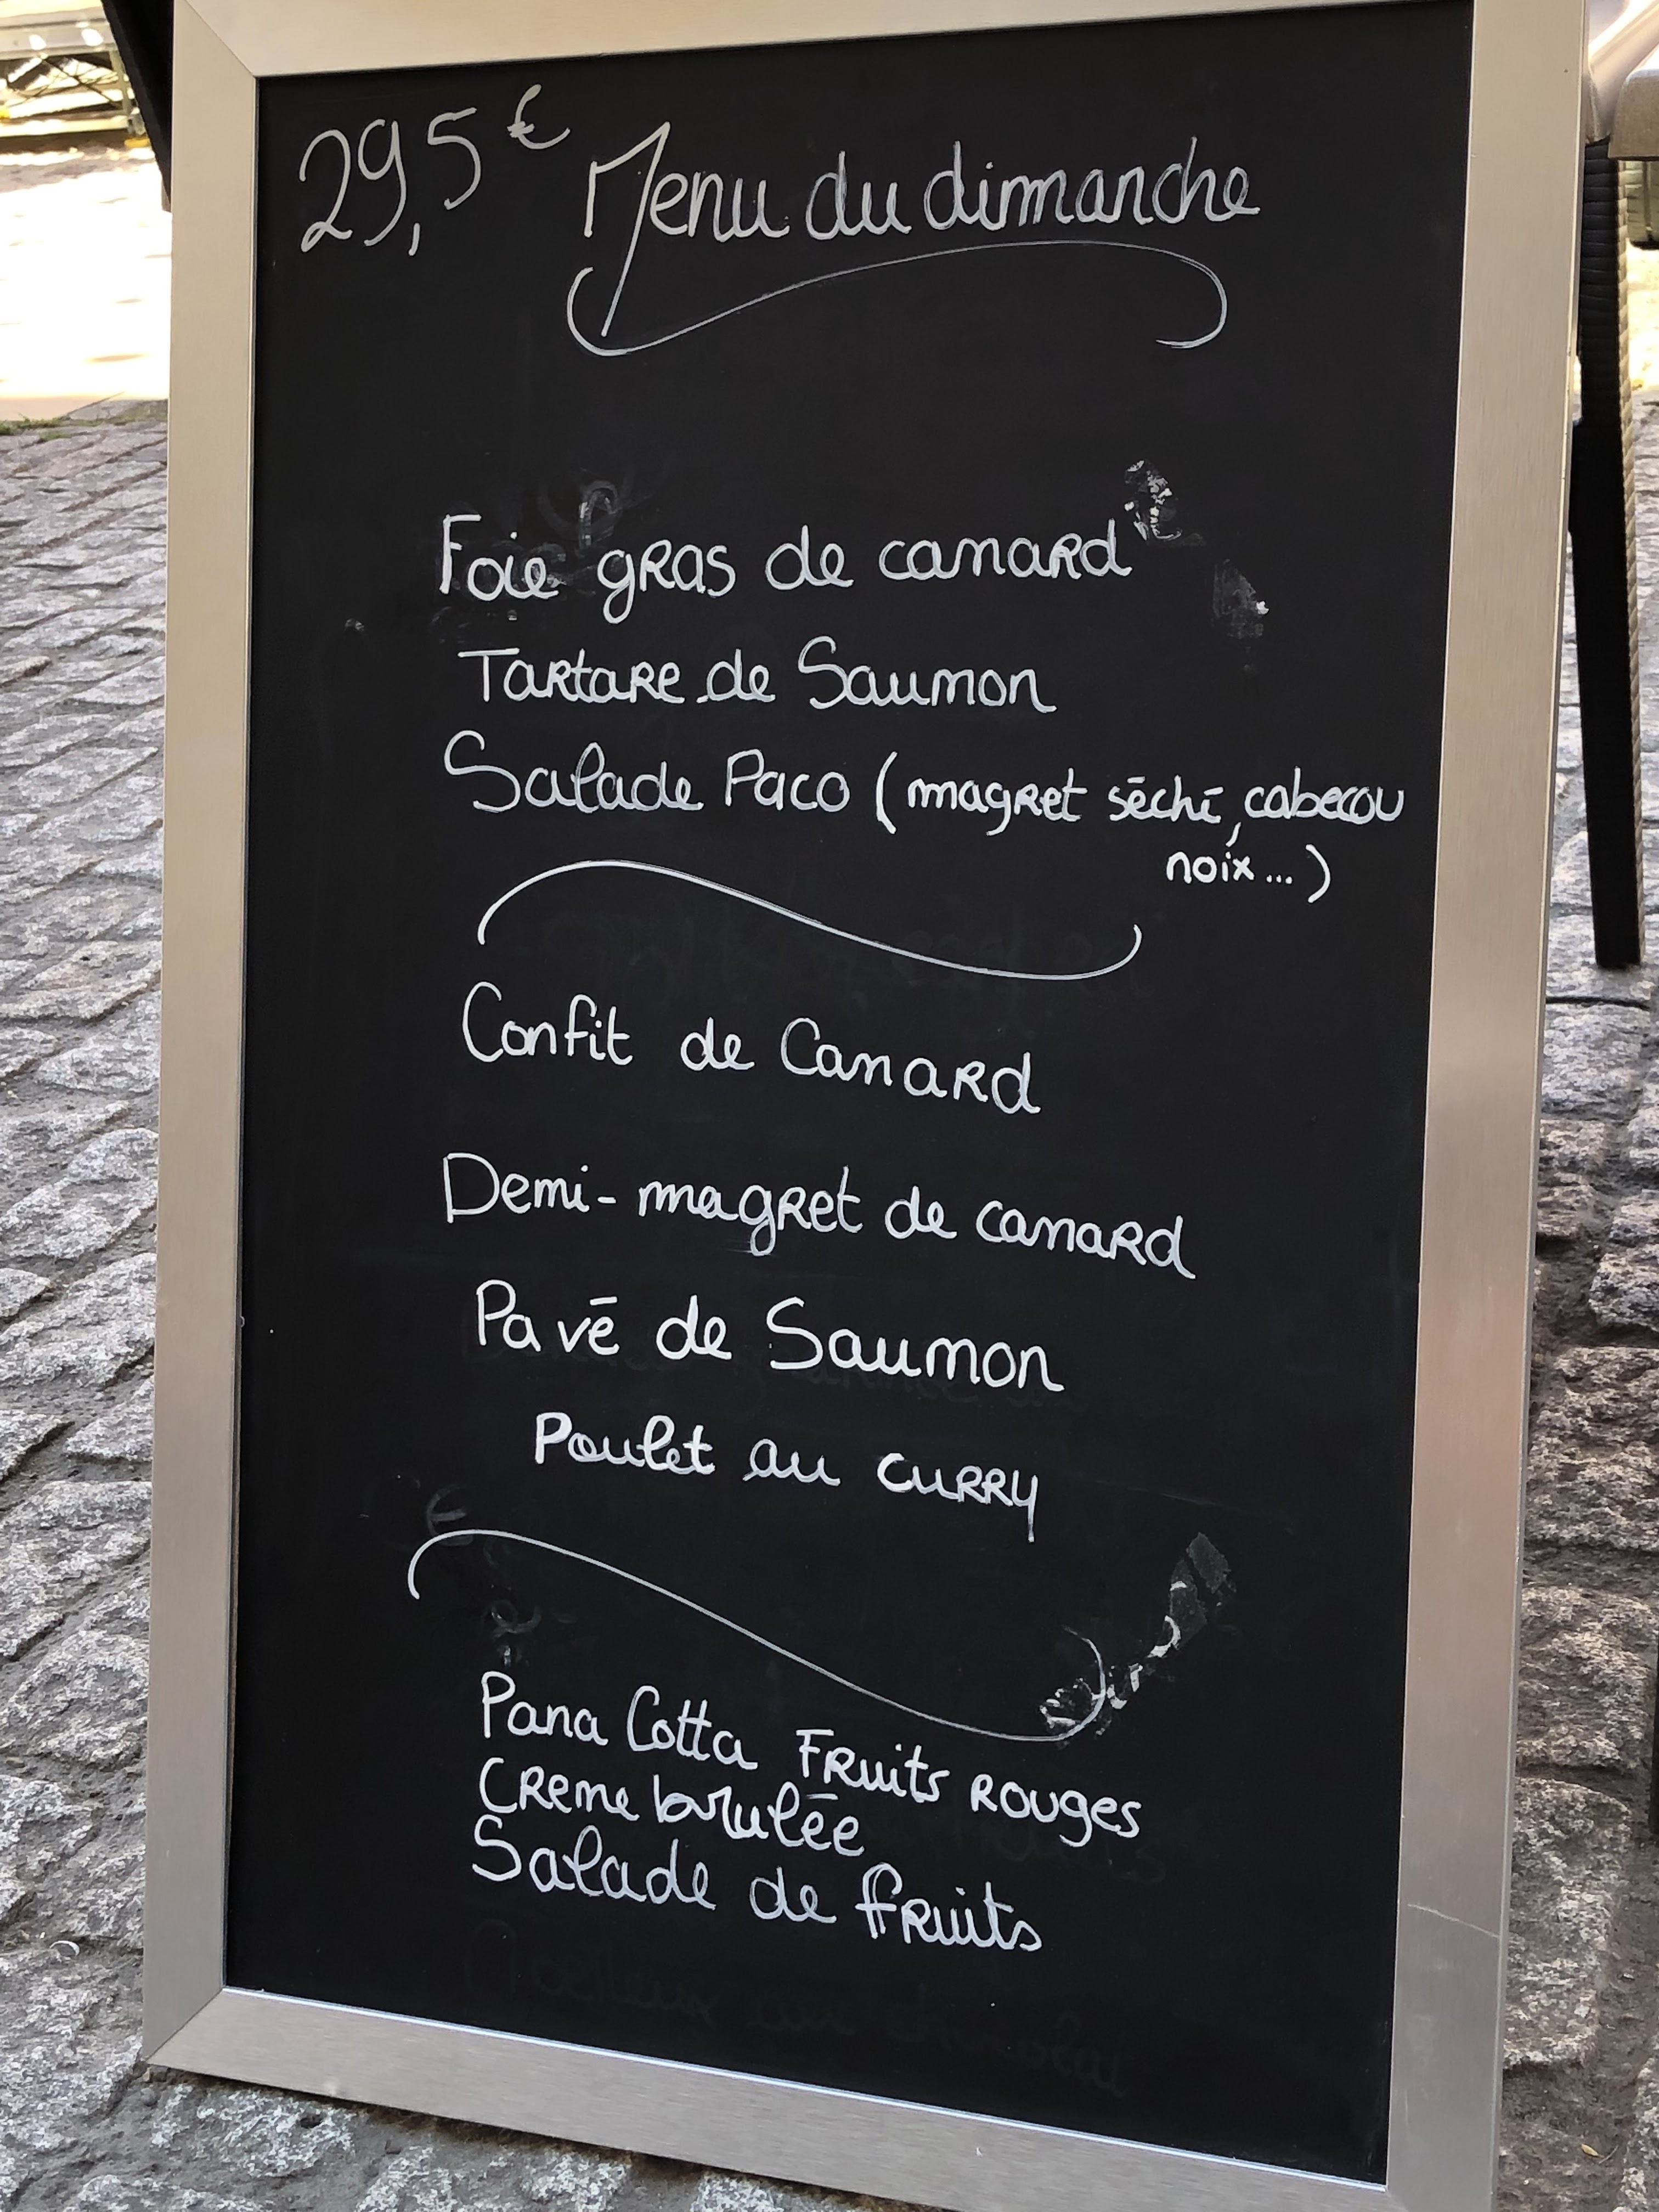 29,5€ Menu du dimanche
Foie gras de canard
Tartare de Saumon
Salade Paco (magret séché, cabecou
noix...)
Confit de Canard
Demi-magret de canard
Pavé de Saumon
Poulet au curry
Pana Cotta Fruits rouges
Creme brulée
Salade de fruits